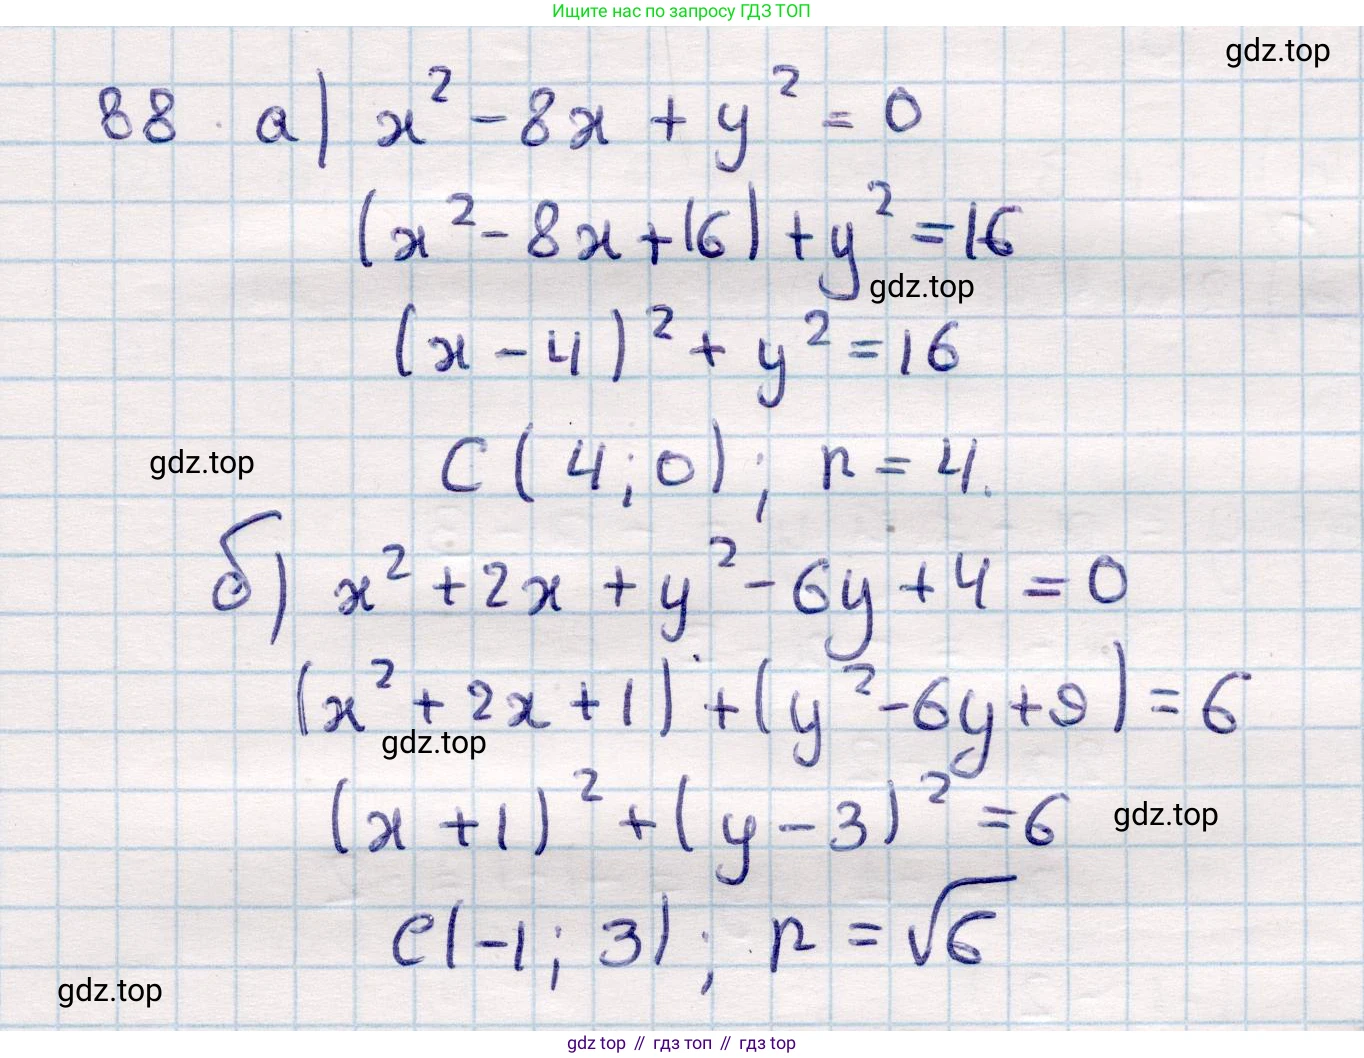 Ищите нас по запросу ГДЗ ТОП
gdz.top
88. а) x² - 8x + y² = 0
(x² - 8x + 16) + y² = 16
gdz.top
(x - 4)² + y² = 16
gdz.top
C (4; 0); r = 4.
б) x² + 2x + y² - 6y + 4 = 0
(x² + 2x + 1) + (y² - 6y + 9) = 6
gdz.top
(x + 1)² + (y - 3)² = 6
gdz.top
C(-1; 3); r = √6
gdz.top
gdz top // гдз топ // гдз top